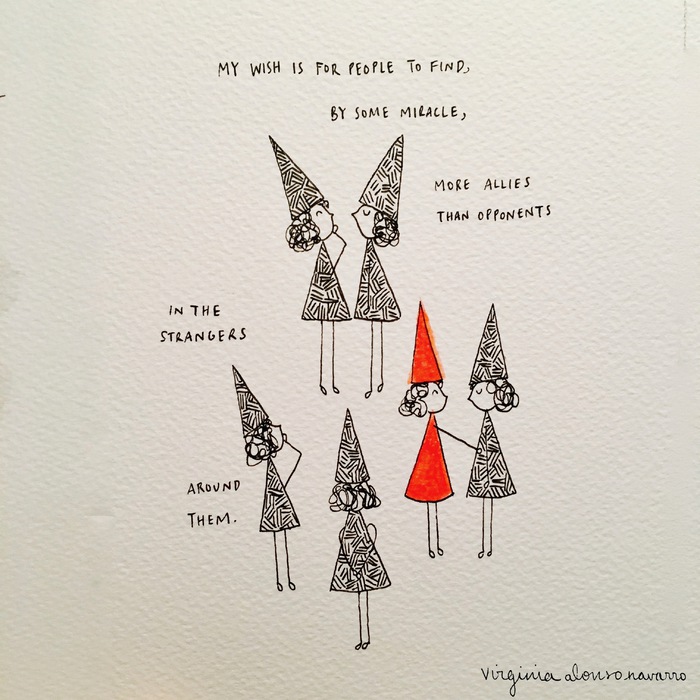 MY WISH IS FOR PEOPLE TO FIND,
BY SOME MIRACLE,
MORE ALLIES
THAN OPPONENTS
IN THE
STRANGERS
AROUND
THEM.
virginia alonso navarro